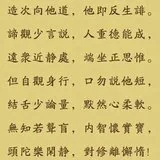 造次向他道，他即反生誹。
諦觀少言說，人重德能成，
遠眾近靜處，端坐正思惟。
但自觀身行，口勿說他短，
結舌少論量，默然心柔軟。
無知若聾盲，內智懷實寶，
頭陀樂閑靜，對修離懈惰！